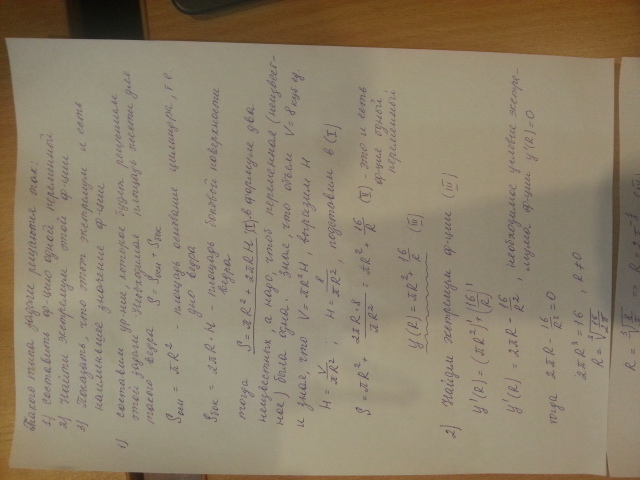 Такого типа задачи решаются так:
1) составить ф-цию одной переменной
2) Найти экстремум этой ф-ции
3) Показать, что этот экстремум и есть
наименьшее значение ф-ции
1) составим ур-ние, которое будет решением
этой задачи. Необходимая площадь жести для
такого ведра S = Sосн + Sбок
Sосн = πR² - площадь основание цилиндра, т.е.
дно ведра
Sбок = 2πR·H - площадь боковой поверхности
ведра
тогда S = πR² + 2πRH (I), в формуле два
неизвестных, а надо, чтоб переменная (неизвест-
ное) была одна. Зная что объем V = 8 куб. ед.
и зная, что V = πR²H, выразим H
H = V/πR² ; H = 8/πR², подставим в (I)
S = πR² + 2πR·8/πR² = πR² + 16/R (II) - это и есть
ф-ция одной
переменной
y(R) = πR² + 16/R (III)
2) Найдем экстремум ф-ции (III)
y'(R) = (πR²)' + (16/R)'
y'(R) = 2πR - 16/R², необходимое условие экстре-
мума ф-ции y'(R) = 0
тогда 2πR - 16/R² = 0
2πR³ = 16, R ≠ 0
R = ∛16/2π